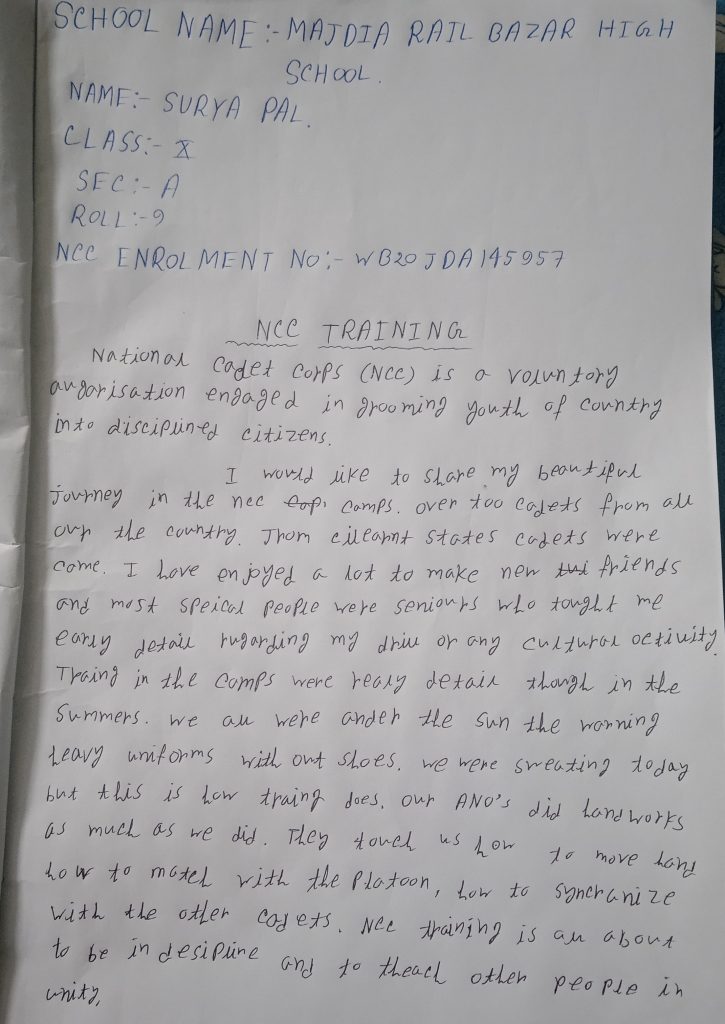 SCHOOL NAME:- MAJDIA RAIL BAZAR HIGH
SCHOOL.
NAME:- SURYA PAL.
CLASS:- X
SEC:- A
ROLL:-9
NCC ENROLMENT NO:- WB20JDA145957
NCC TRAINING
National Cadet Corps (NCC) is a voluntory
augorisation engaged in grooming youth of country
into disciplined citizens.
I would like to share my beautiful
journey in the ncc camps. over 700 cadets from all
our the country. From states cadets were
come. I have enjoyed a lot to make new friends
and most speical people were seniours who tought me
early detail rugarding my drill or any cultural activity.
Traing in the camps were realy detail though in the
Summers. we all were ander the sun the worning
heavy uniforms with out shoes. we were sweating today
but this is how traing does. our ANO's did handworks
as much as we did. They touch us how to move hand
how to match with the Platoon, how to syncranize
with the other cadets. Ncc training is all about
to be in desipline and to theach other people in
unity.